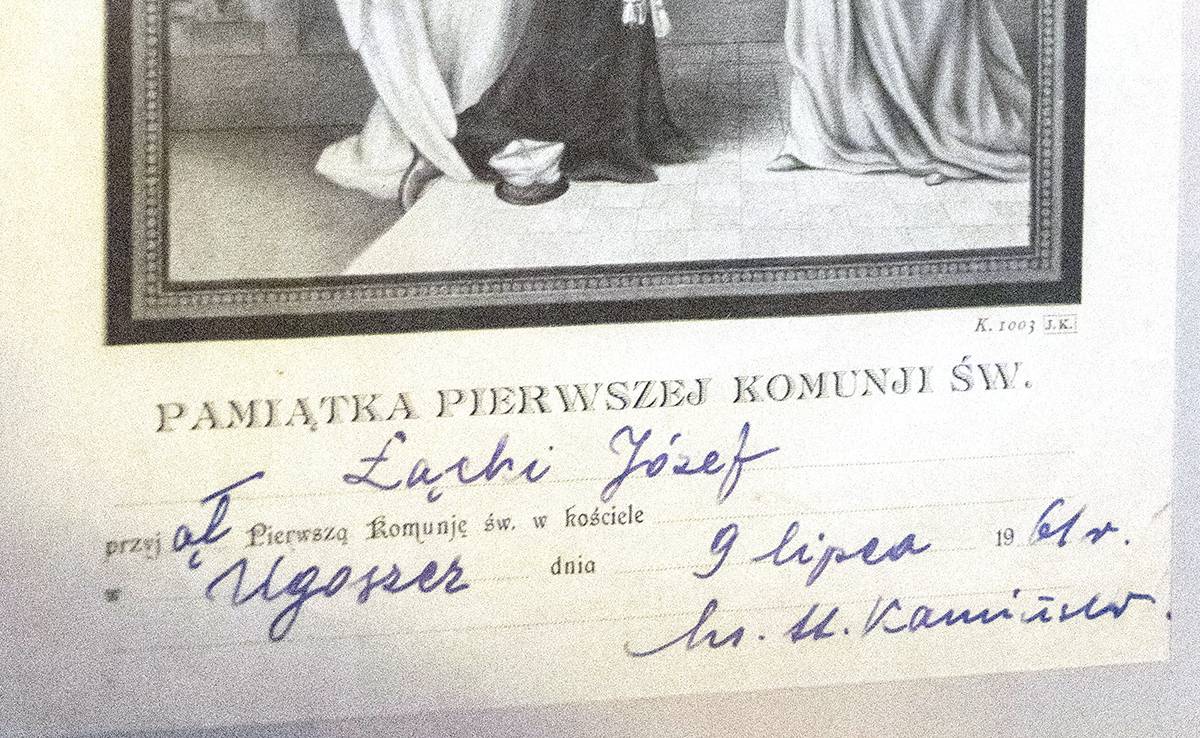 K. 1003 J.K.
PAMIĄTKA PIERWSZEJ KOMUNJI ŚW.
Łącki Józef
przyjął Pierwszą Komunję św. w kościele
w Ugoszcz dnia 9 lipca 1961 r.
ks. H.